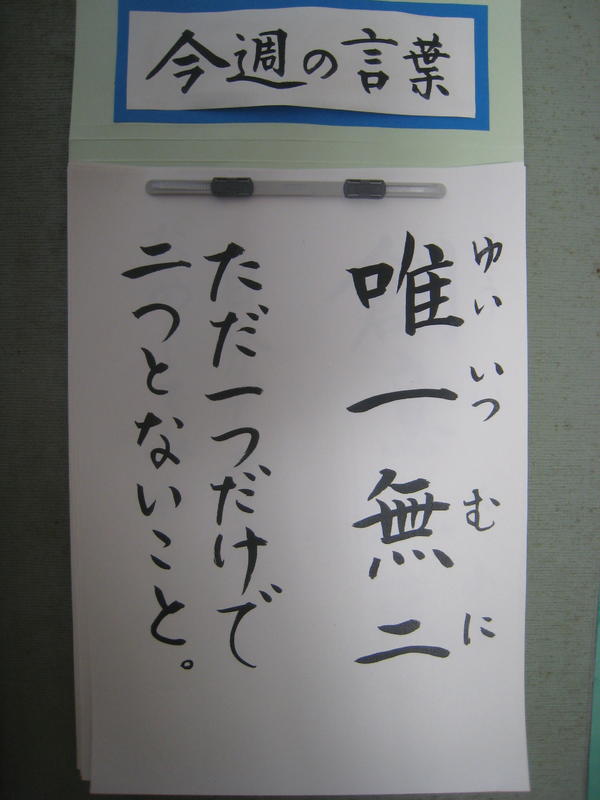 今週の言葉
ゆいいつむに
唯一無二
ただ一つだけで
二つとないこと。